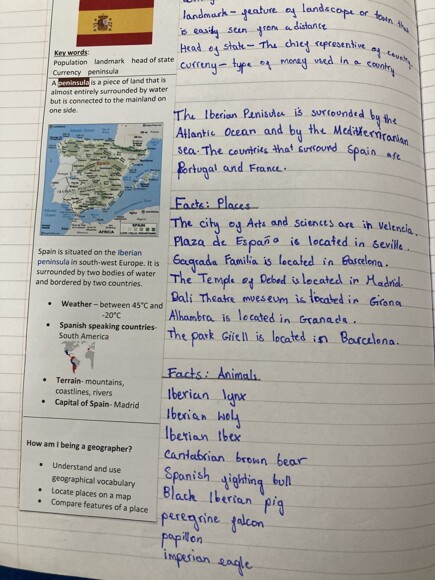 Key words:
Population landmark head of state
Currency peninsula
A peninsula is a piece of land that is
almost entirely surrounded by water
but is connected to the mainland on
one side.
SPAIN
AFRICA
Spain is situated on the Iberian
peninsula in south-west Europe. It is
surrounded by two bodies of water
and bordered by two countries.
• Weather – between 45°C and
-20°C
• Spanish speaking countries-
South America
• Terrain- mountains,
coastlines, rivers
• Capital of Spain- Madrid
How am I being a geographer?
• Understand and use
geographical vocabulary
• Locate places on a map
• Compare features of a place
landmark - feature of landscape or town that
is easily seen from a distance
Head of state - The chief representative of country
curreny - type of money used in a country
The Iberian Penisula is surrounded by the
Atlantic Ocean and by the Mediterranian
sea. The countries that surround Spain are
Portugal and France.
Facts: Places
The city of Arts and sciences are in Velencia.
Plaza de España is located in Seville.
Sagrada Familia is located in Barcelona.
The Temple of Debod is located in Madrid.
Dali Theatre mueseum is located in Girona
Alhambra is located in Granada.
The park Güell is located in Barcelona.
Facts: Animals
Iberian lynx
Iberian wolf
Iberian Ibex
Cantabrian brown bear
Spanish fighting bull
Black Iberian pig
peregrine falcon
papillon
imperian eagle